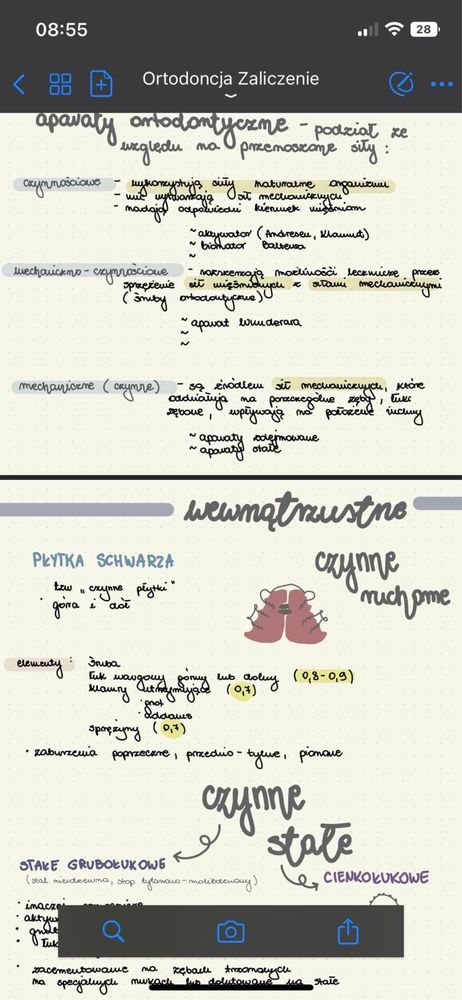 08:55
28
Ortodoncja Zaliczenie
aparaty ortodontyczne - podział ze
względu na przenoszone siły :
czynnościowe - wykorzystują siły naturalne organizmu
- nie wytwarzają sił mechanicznych
- nadają odpowiedni kierunek mięśniom
~ aktywator ( Andresen, Klammt )
~ bionator Baltersa
~
mechaniczno - czynnościowe - rozszerzają możliwości lecznicze przez
sprzężenie sił mięśniowych z siłami mechanicznymi
( śruby ortodontyczne )
~ aparat Wunderera
~
~
mechaniczne ( czynne ) - są źródłem sił mechanicznych, które
oddziałują na poszczególne zęby, łuki
zębowe, wpływają na położenie żuchwy
~ aparaty zdejmowane
~ aparaty stałe
wewnątrzustne
PŁYTKA SCHWARZA
czynne
ruchome
tzw „ czynne płytki "
· góra i dół
elementy : śruba
łuk wargowy górny lub dolny ( 0,8 - 0,9 )
klamry utrzymujące ( 0,7 )
· grot
· addams
sprężyny ( 0,7 )
· zaburzenia poprzeczne, przednio - tylne, pionowe
czynne
stałe
STAŁE GRUBOŁUKOWE
CIENKOŁUKOWE
( stal nierdzewna, stop tytanowo - molibdenowy )
· inaczej
· aktyw
· zacementowane na zębach trzonowych
na specjalnych lub dolutowane na stałe